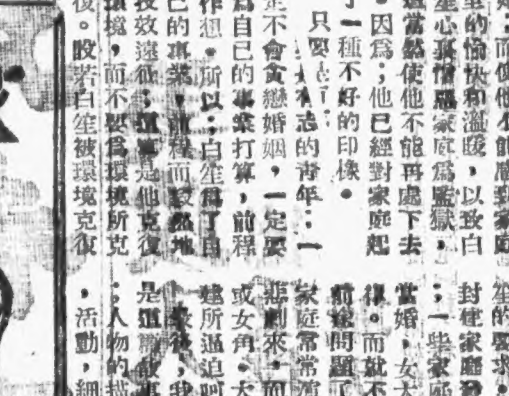 而使他不能感到家庭
的愉快和溫暖，以致白
笙心裏憎惡家庭爲監獄，
這當然使他不能再處下去
。因爲，他已經對家庭起
了一種不好的印樣。
只要有志的青年；一
定不會貪戀婚姻，一定要
爲自己的事業打算，前程
作想。所以；白笙爲了自
己的事業，前程而毅然地
投效遠征；這算是他克復
環境，而不要爲環境所克
復。設若白笙被環境克復
笙的要求。
封建家庭
；一些家庭
當婚，女大
樣。而就不
前途問題了
家庭常常演
悲劇來，而
或女角。大
建所逼迫
最後，我
是這篇故事
；人物的描
，活動，細